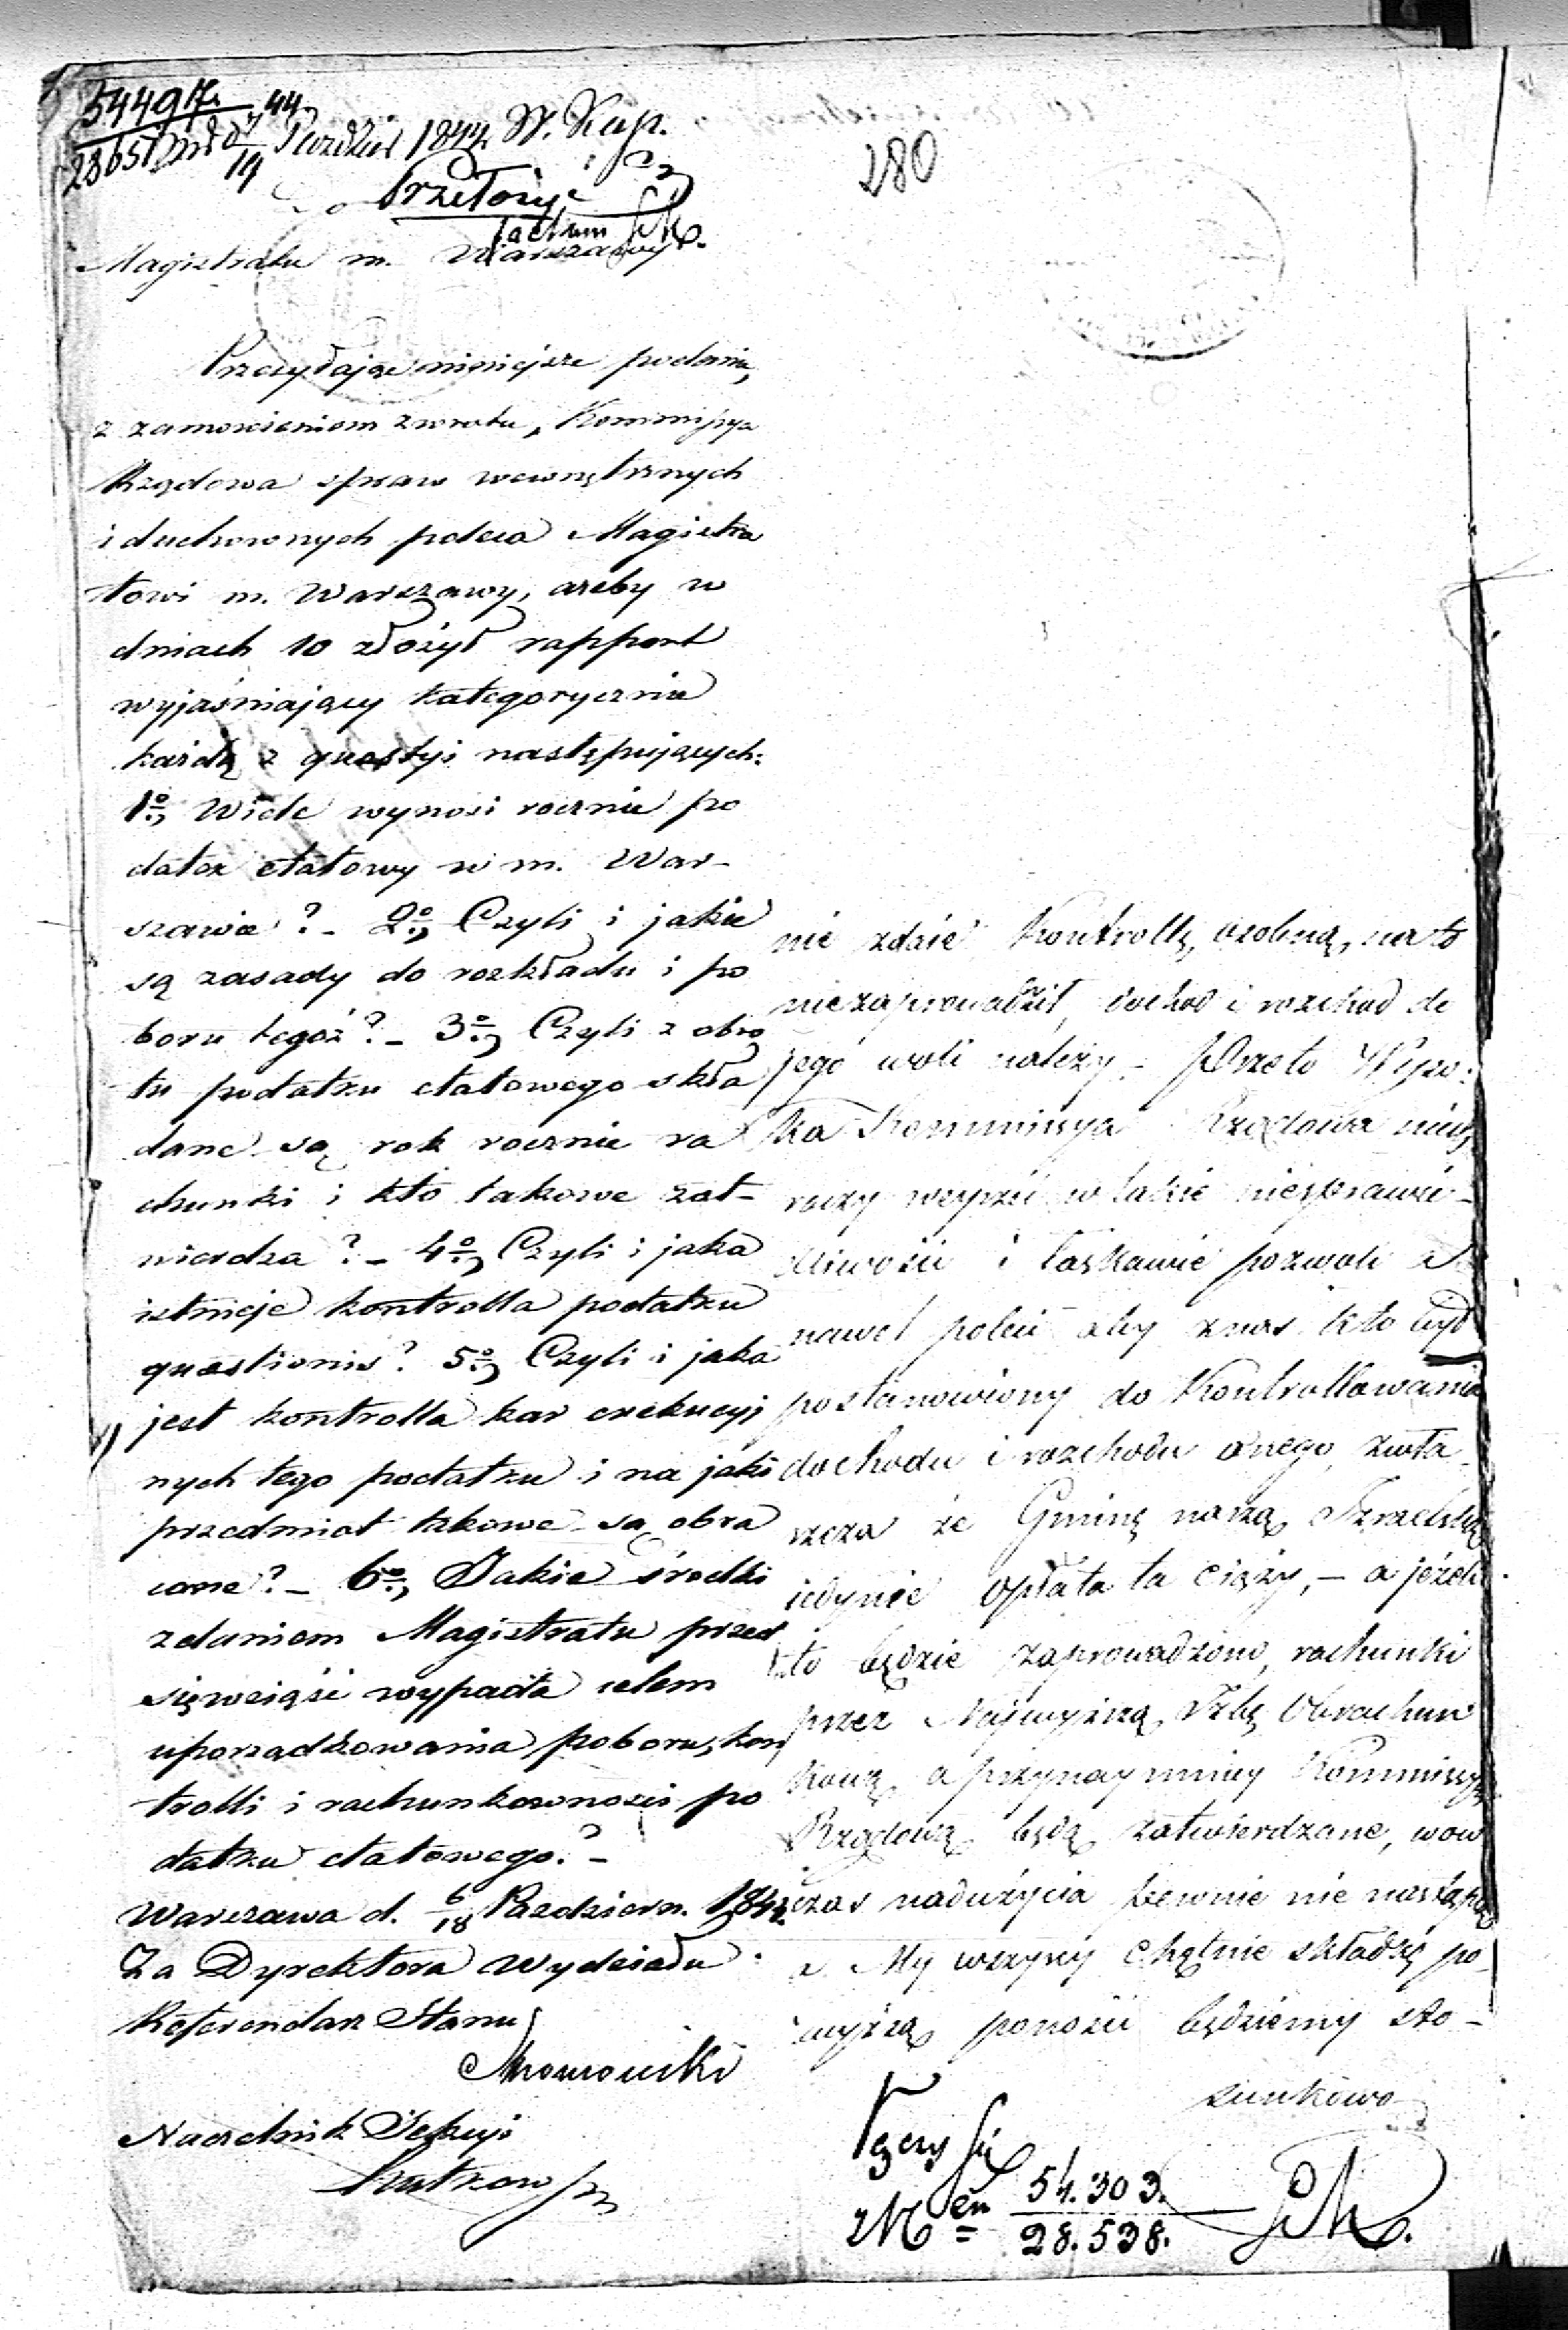 54491/7.
28651 44.
Pazdzier 1844 W. Kap.
Przełożyć
factum
280
Magistratu m. Warszawy
Przesyłając niniejsze podania,
z zamowieniem zwrotu, Kommissya
Rządowa spraw wewnętrznych
i duchownych poleca Magistra
towi m. Warszawy, ażeby w
dniach 10 złożył rapport
wyjaśniający kategorycznie
każdą z questyi następujących:
1o, Wiele wynosi rocznie po
datek etatowy w m. War-
szawie? - 2o, Czyli i jakie
są zasady do rozkładu i po
boru tegoż? - 3o, Czyli z obro
tu podatku etatowego skła
dane są rok rocznie ra
chunki i kto takowe zat-
wierdza? - 4o, Czyli i jaka
istnieje kontrolla podatku
questionis? 5o, Czyli i jaka
jest kontrolla kar exekucyj
nych tego podatku i na jaki
przedmiot takowe są obra
cane? - 6o, Jakie środki
zdaniem Magistratu przed
sięwziąść wypada celem
uporządkowania poboru, kon
trolli i rachunkowności po
datku etatowego? -
Warszawa d. 6/18 Pazdziern. 1844.
Za Dyrektora Wydziału
Referendarz Stanu
Naczelnik Sekcyi
nie zdzie Kontrollę, osobną, na to
niezaprowadził, dochod i rozchod do
jego woli należy. - Przeto Wyso:
ka Kommissya Rządowa
raczy wejrzeć w takie niesprawie-
dliwości i łaskawie pozwoli
nawet poleci aby z nas kto był
postanowiony do Kontrollowania
dochodu i rozchodu onego, zwła
szcza że Gminę naszą Izraelską
jedynie opłata ta ciąży, - a jeżeli
to będzie zaprowadzono, rachunki
przez Najwyższą Izbę Obrachun
kową, a przynaymniey Kommissyą
Rządową będą zatwierdzane, wow
czas nadużycia pewnie nie nastąpią
a My wszyscy chętnie składkę po-
wyższą ponosić będziemy sto-
sunkowo
54.303.
28.538.